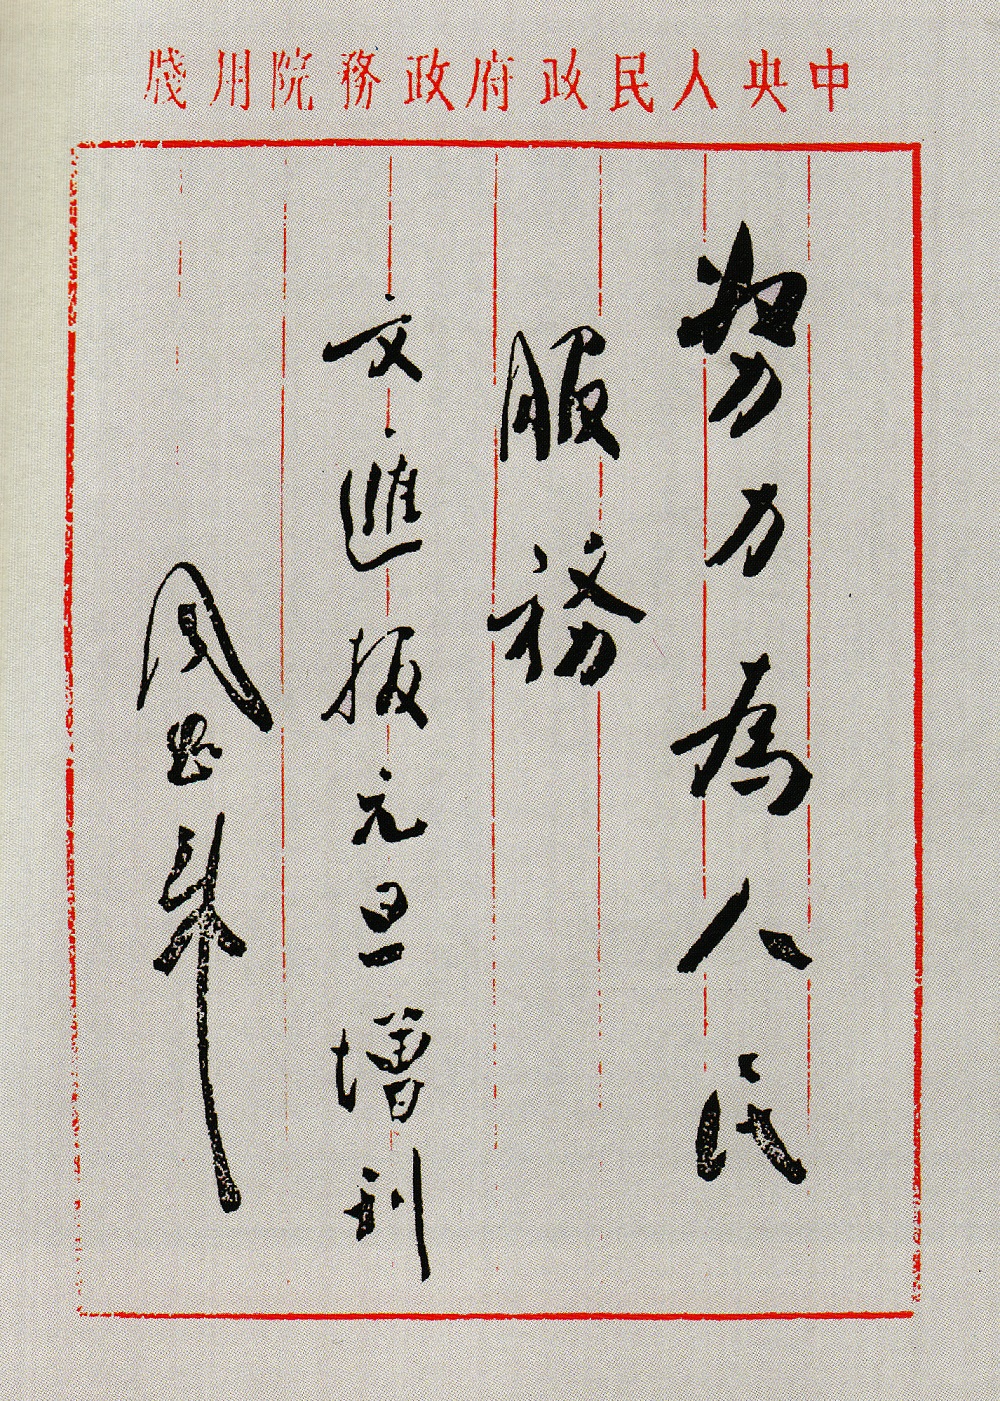 中央人民政府政務院用牋
努力為人民
服務
文匯报元旦增刊
周恩来